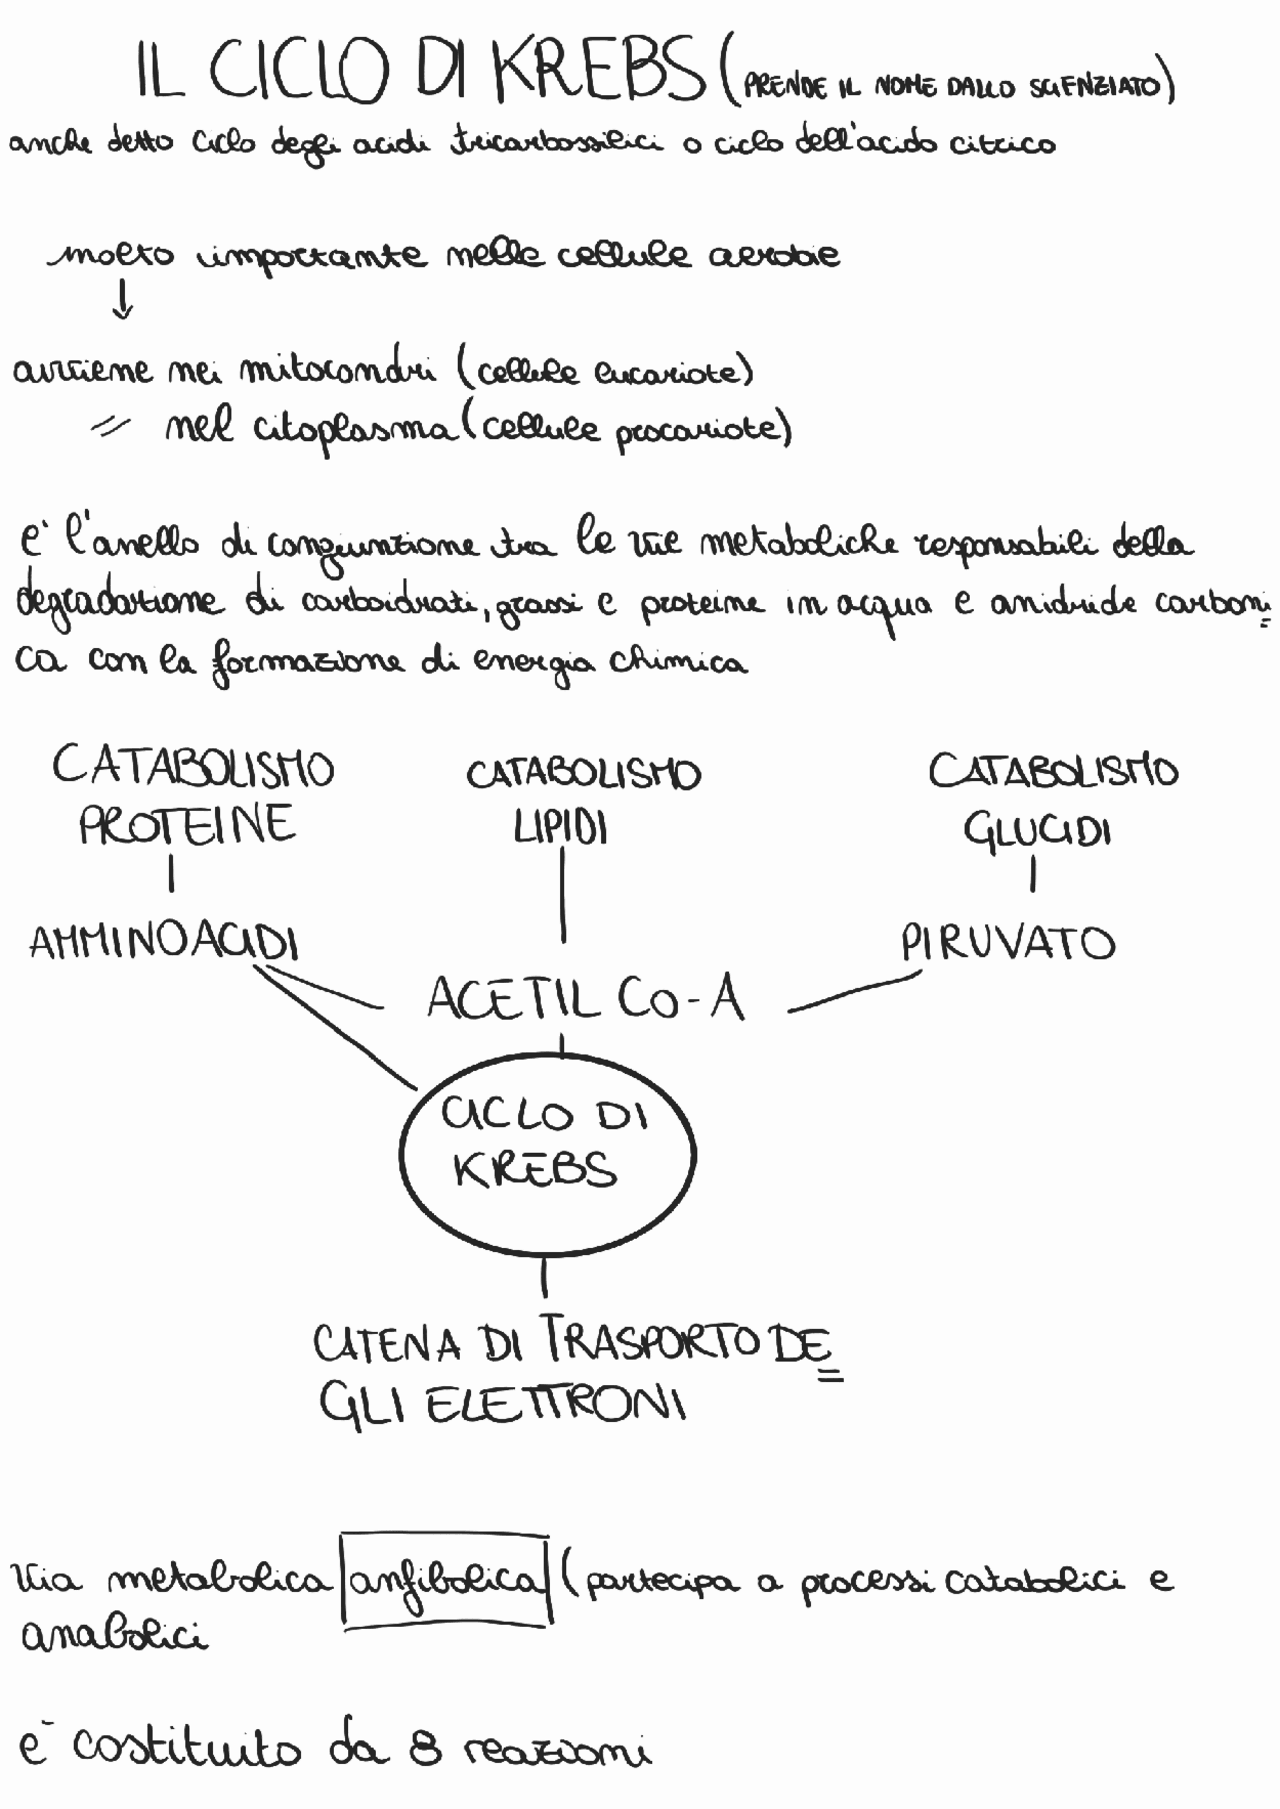 IL CICLO DI KREBS (PRENDE IL NOME DALLO SCIENZIATO)
anche detto Ciclo degli acidi tricarbossilici o ciclo dell'acido citrico
molto importante nelle cellule aerobie
↓
avviene nei mitocondri (cellule eucariote)
〃 nel citoplasma (cellule procariote)
e' l'anello di congiunzione tra le vie metaboliche responsabili della
degradazione di carboidrati, grassi e proteine in acqua e anidride carboni=
ca con la formazione di energia chimica
CATABOLISMO CATABOLISMO CATABOLISMO
PROTEINE LIPIDI GLUCIDI
AMMINOACIDI PIRUVATO
ACETIL Co-A
CICLO DI
KREBS
CATENA DI TRASPORTO DE=
GLI ELETTRONI
Via metabolica anfibolica (partecipa a processi catabolici e
anabolici
e' costituito da 8 reazioni